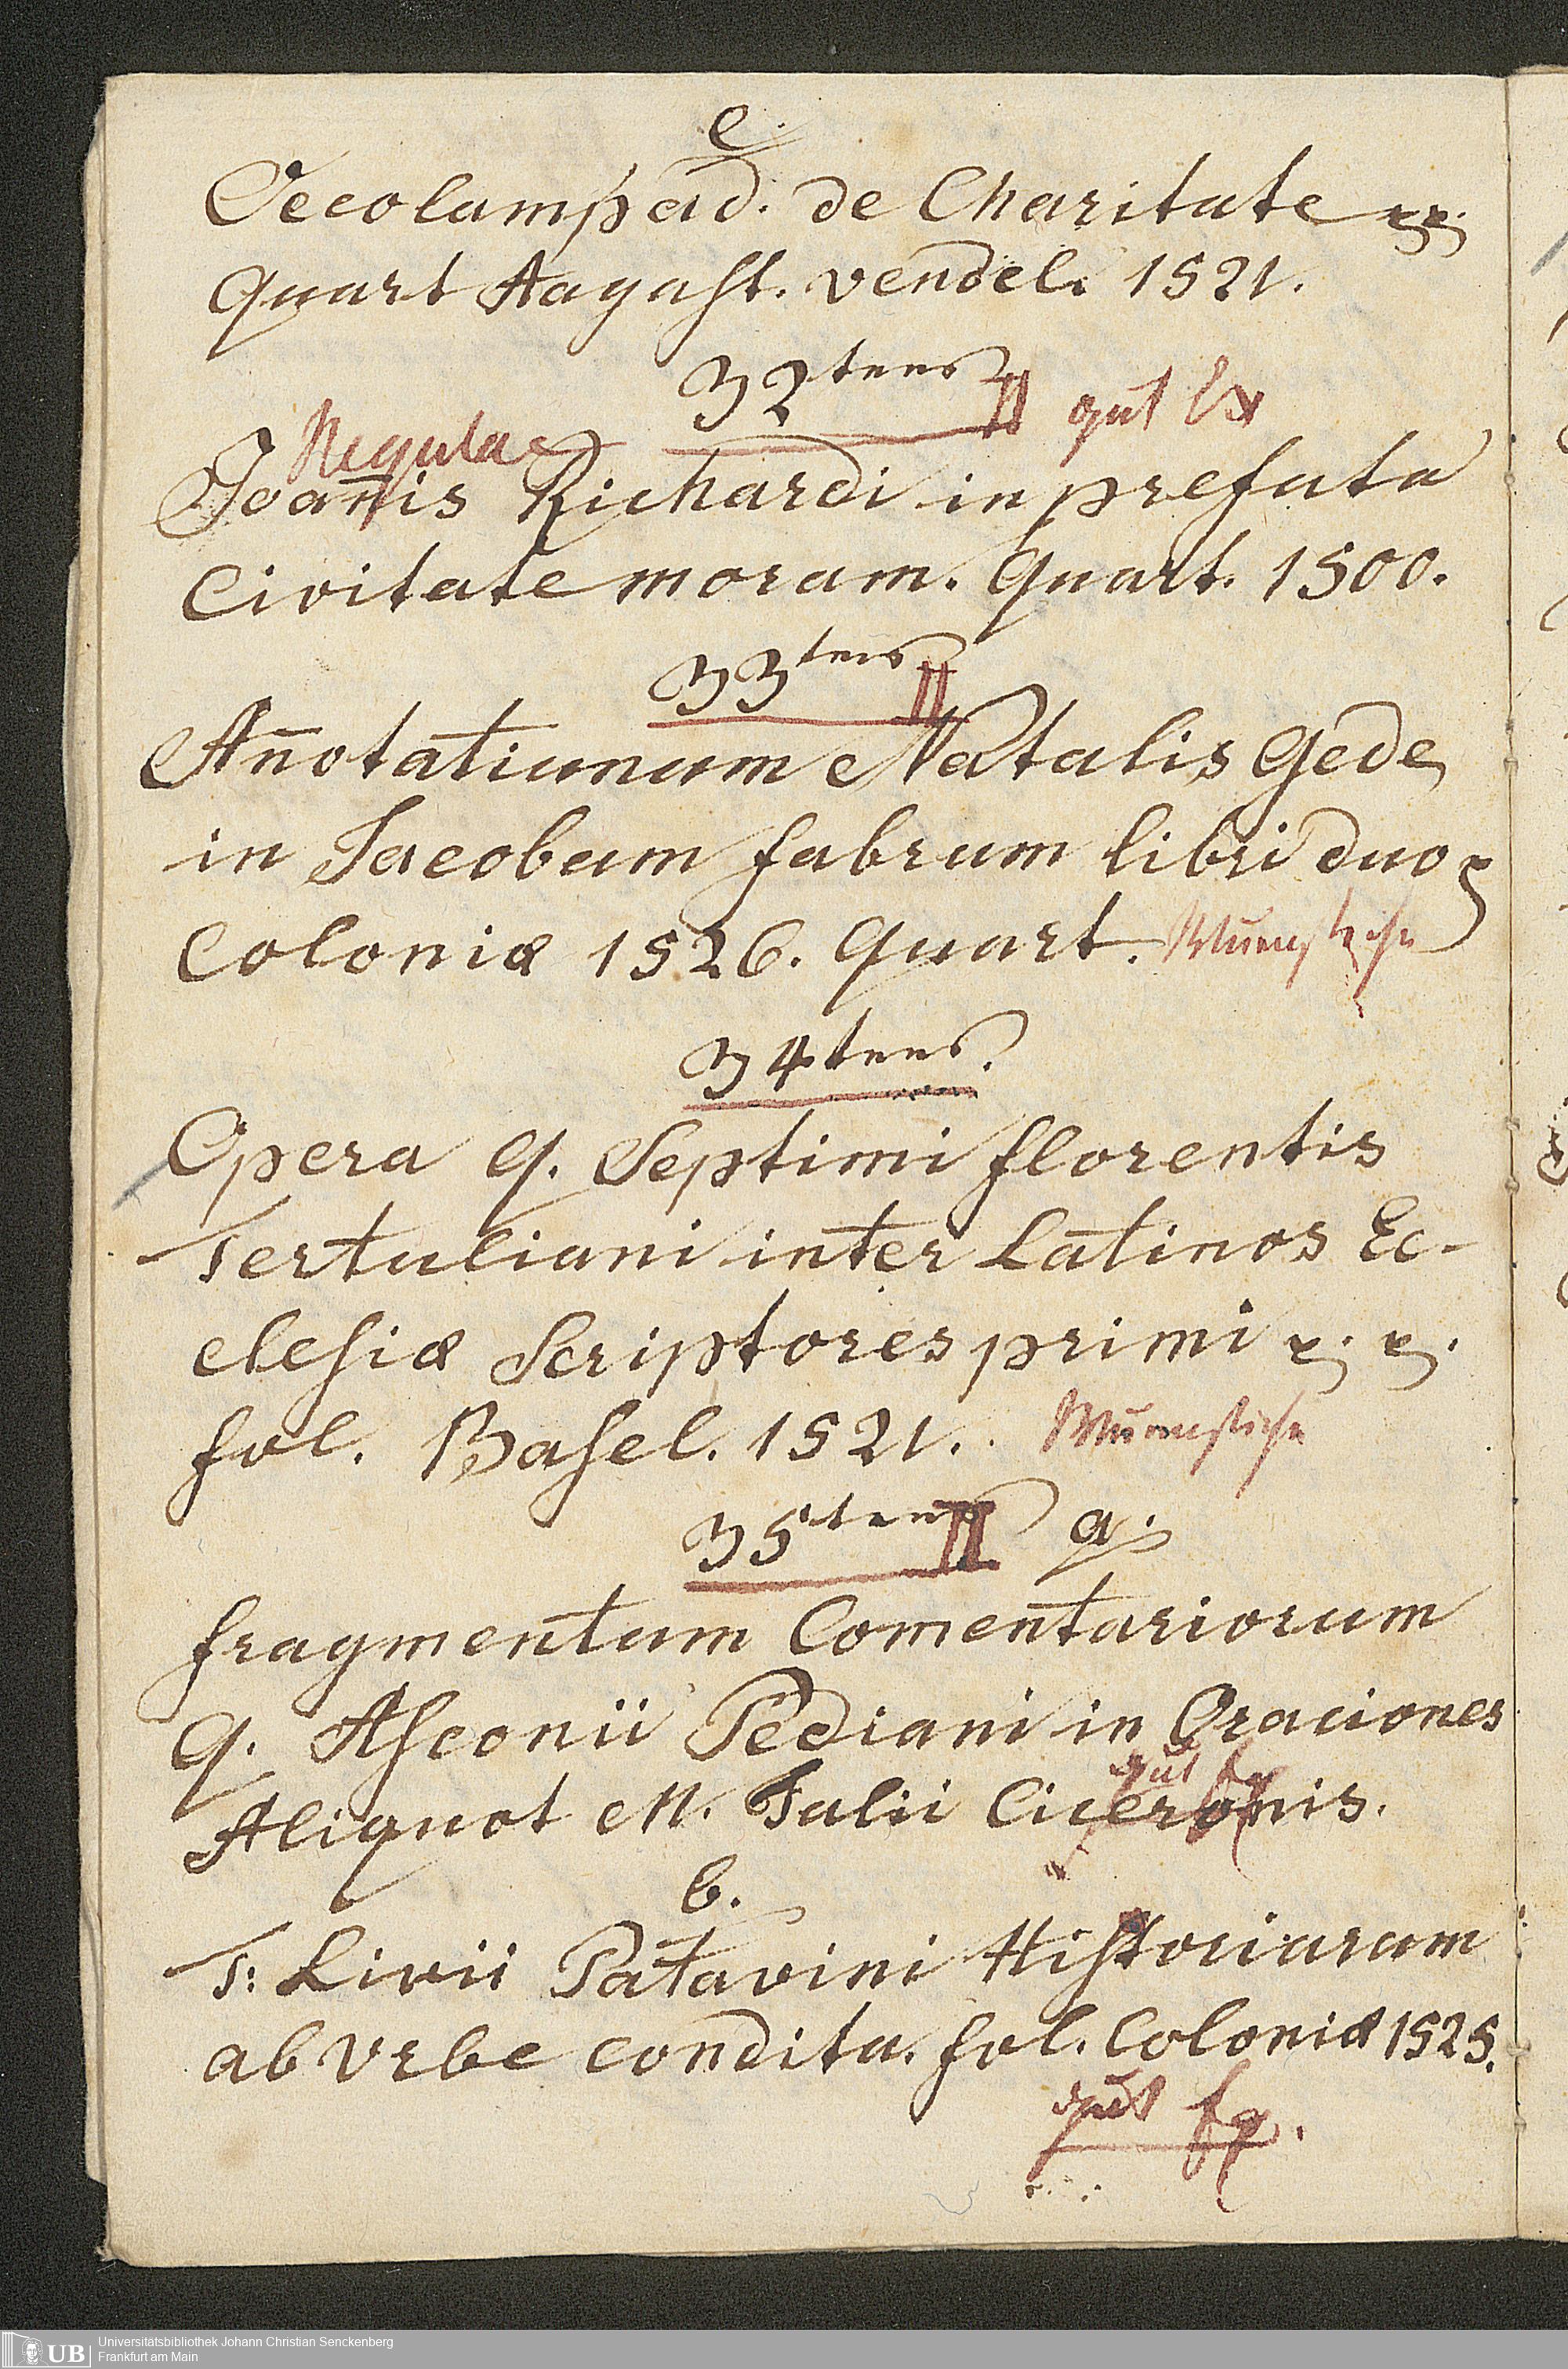 e.
Oecolampad. de Charitate
Quart August. vendel. 1521.
32tens II gut Ex
Regulae
Joan̄is Richardi in prefata
Civitate moram. Quart. 1500.
33tens II
An̄otatiunum Natalis Bede
in Jacobum fabrum libri duo
Coloniæ 1526. Quart.
34tens.
Opera Q. Septimi florentis
Tertuliani inter Latinos Ec-
clesiæ Scriptores primi
fol. Basel. 1521.
35tens II a.
fragmentum Comentariorum
Q. Asconii Pediani in Oraciones
gut
Aliquot M. Tulii Ciceronis.
b.
T: Livii Patavini Historiarum
ab Vrbe condita. fol. Coloniæ 1525.
gut
Universitätsbibliothek Johann Christian Senckenberg
UB Frankfurt am Main